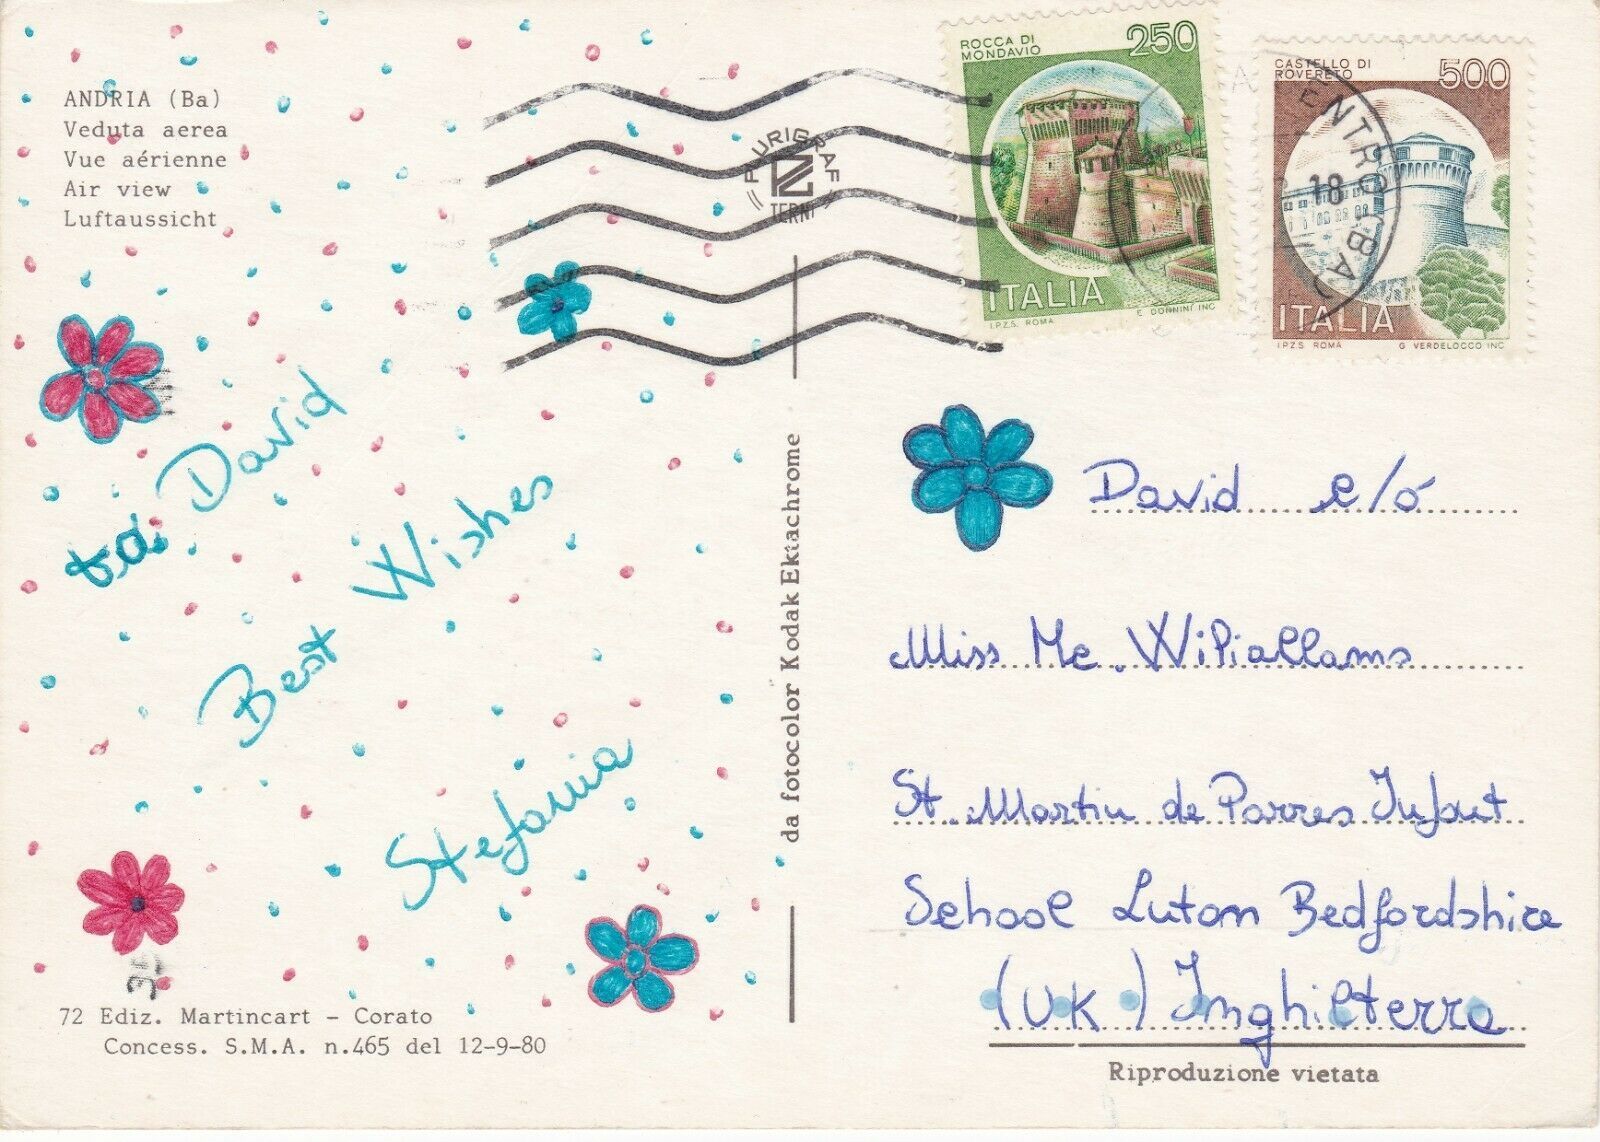 ANDRIA (Ba)
Veduta aerea
Vue aérienne
Air view
Luftaussicht
David
Best Wishes
Stefania
72 Ediz. Martincart - Corato
Concess. S.M.A. n.465 del 12-9-80
da fotocolor Kodak Ektachrome
PURIGRAF
TERNI
ROCCA DI
MONDAVIO
250
ITALIA
I.P.Z.S. ROMA E DONNINI INC
CASTELLO DI
ROVERETO
500
ITALIA
I.P.Z.S ROMA G VERDELOCCO INC
CENTRO (BA)
18
David c/o
Miss Mc. Wiliallams
St. Martin de Parres Infant
School Luton Bedfordshire
(UK) Inghilterra
Riproduzione vietata